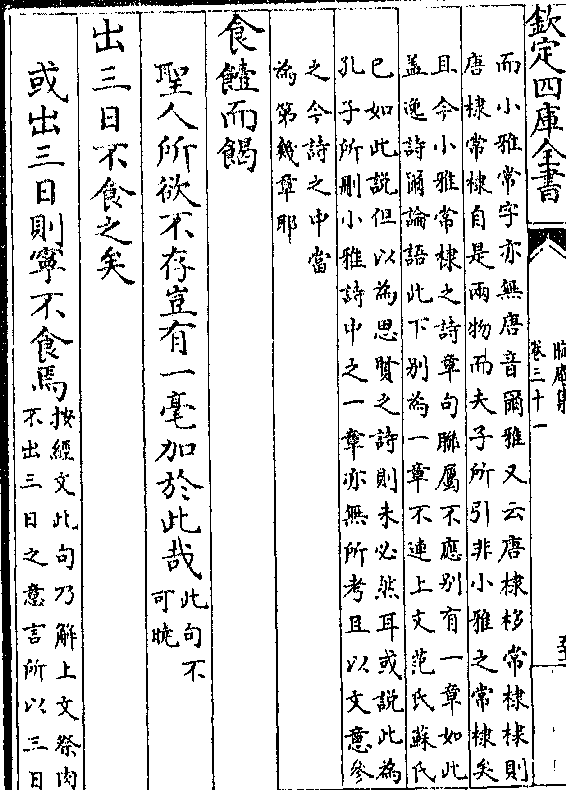 欽定四庫全書
晦庵集
卷三十一
而小雅常字亦無唐音爾雅又云唐棣栘常棣棣則
唐棣常棣自是兩物而夫子所引非小雅之常棣矣
且今小雅常棣之詩章句聯屬不應別有一章如此
盖逸詩爾論語此下別為一章不連上文范氏蘇氏
已如此說但以為思賢之詩則未必然耳或說此為
孔子所刪小雅詩中之一章亦無所考且以文意參
之今詩之中當
為第幾章耶
食饐而餲
聖人所欲不存豈有一毫加於此哉
此句不
可曉
出三日不食之矣
或出三日則寧不食焉
按經文此句乃解上文祭肉
不出三日之意言所以三日